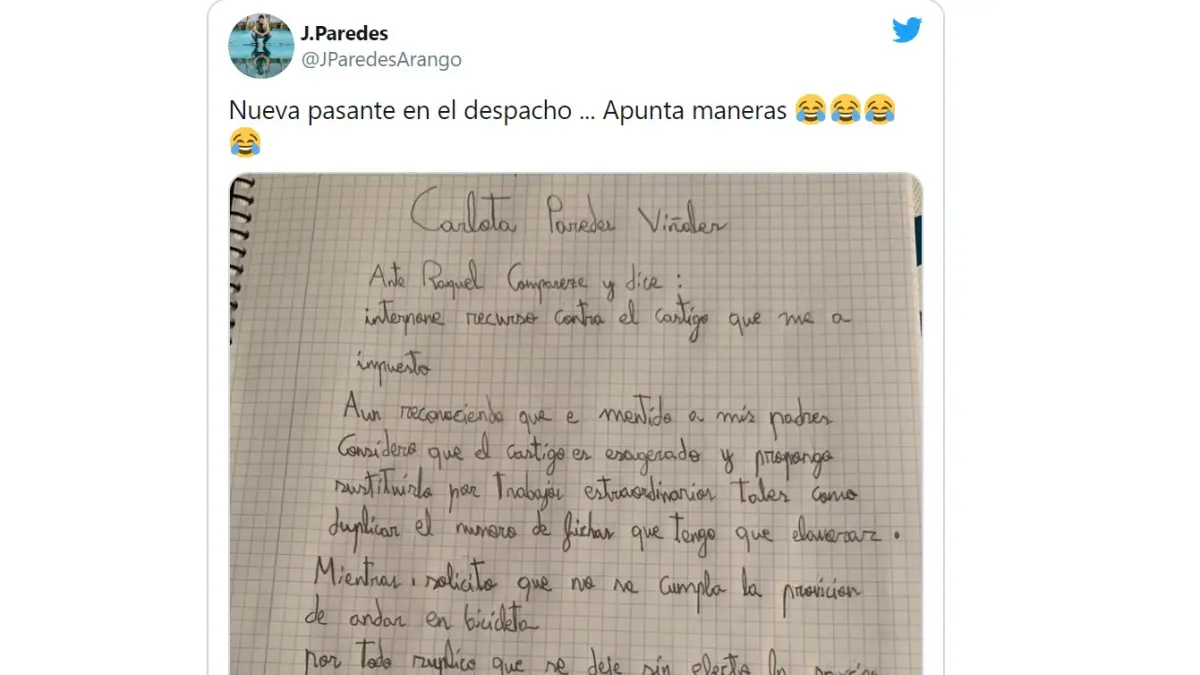 J.Paredes
@JParedesArango
Nueva pasante en el despacho ... Apunta maneras 😂😂😂
😂
Carlota Paredes Viñales
Ante Raquel Compareze y dice :
interpone recurso contra el castigo que me a
impuesto
Aun reconociendo que e mentido a mis padres
Considero que el castigo es esagerado y propongo
sustituirlo por Trabajos estraordinarios Tales como
duplicar el numero de fichas que tengo que elavorar .
Mientras, solicito que no se cumpla la provicion
de andar en bicicleta
por todo suplico que se deje sin efecto la